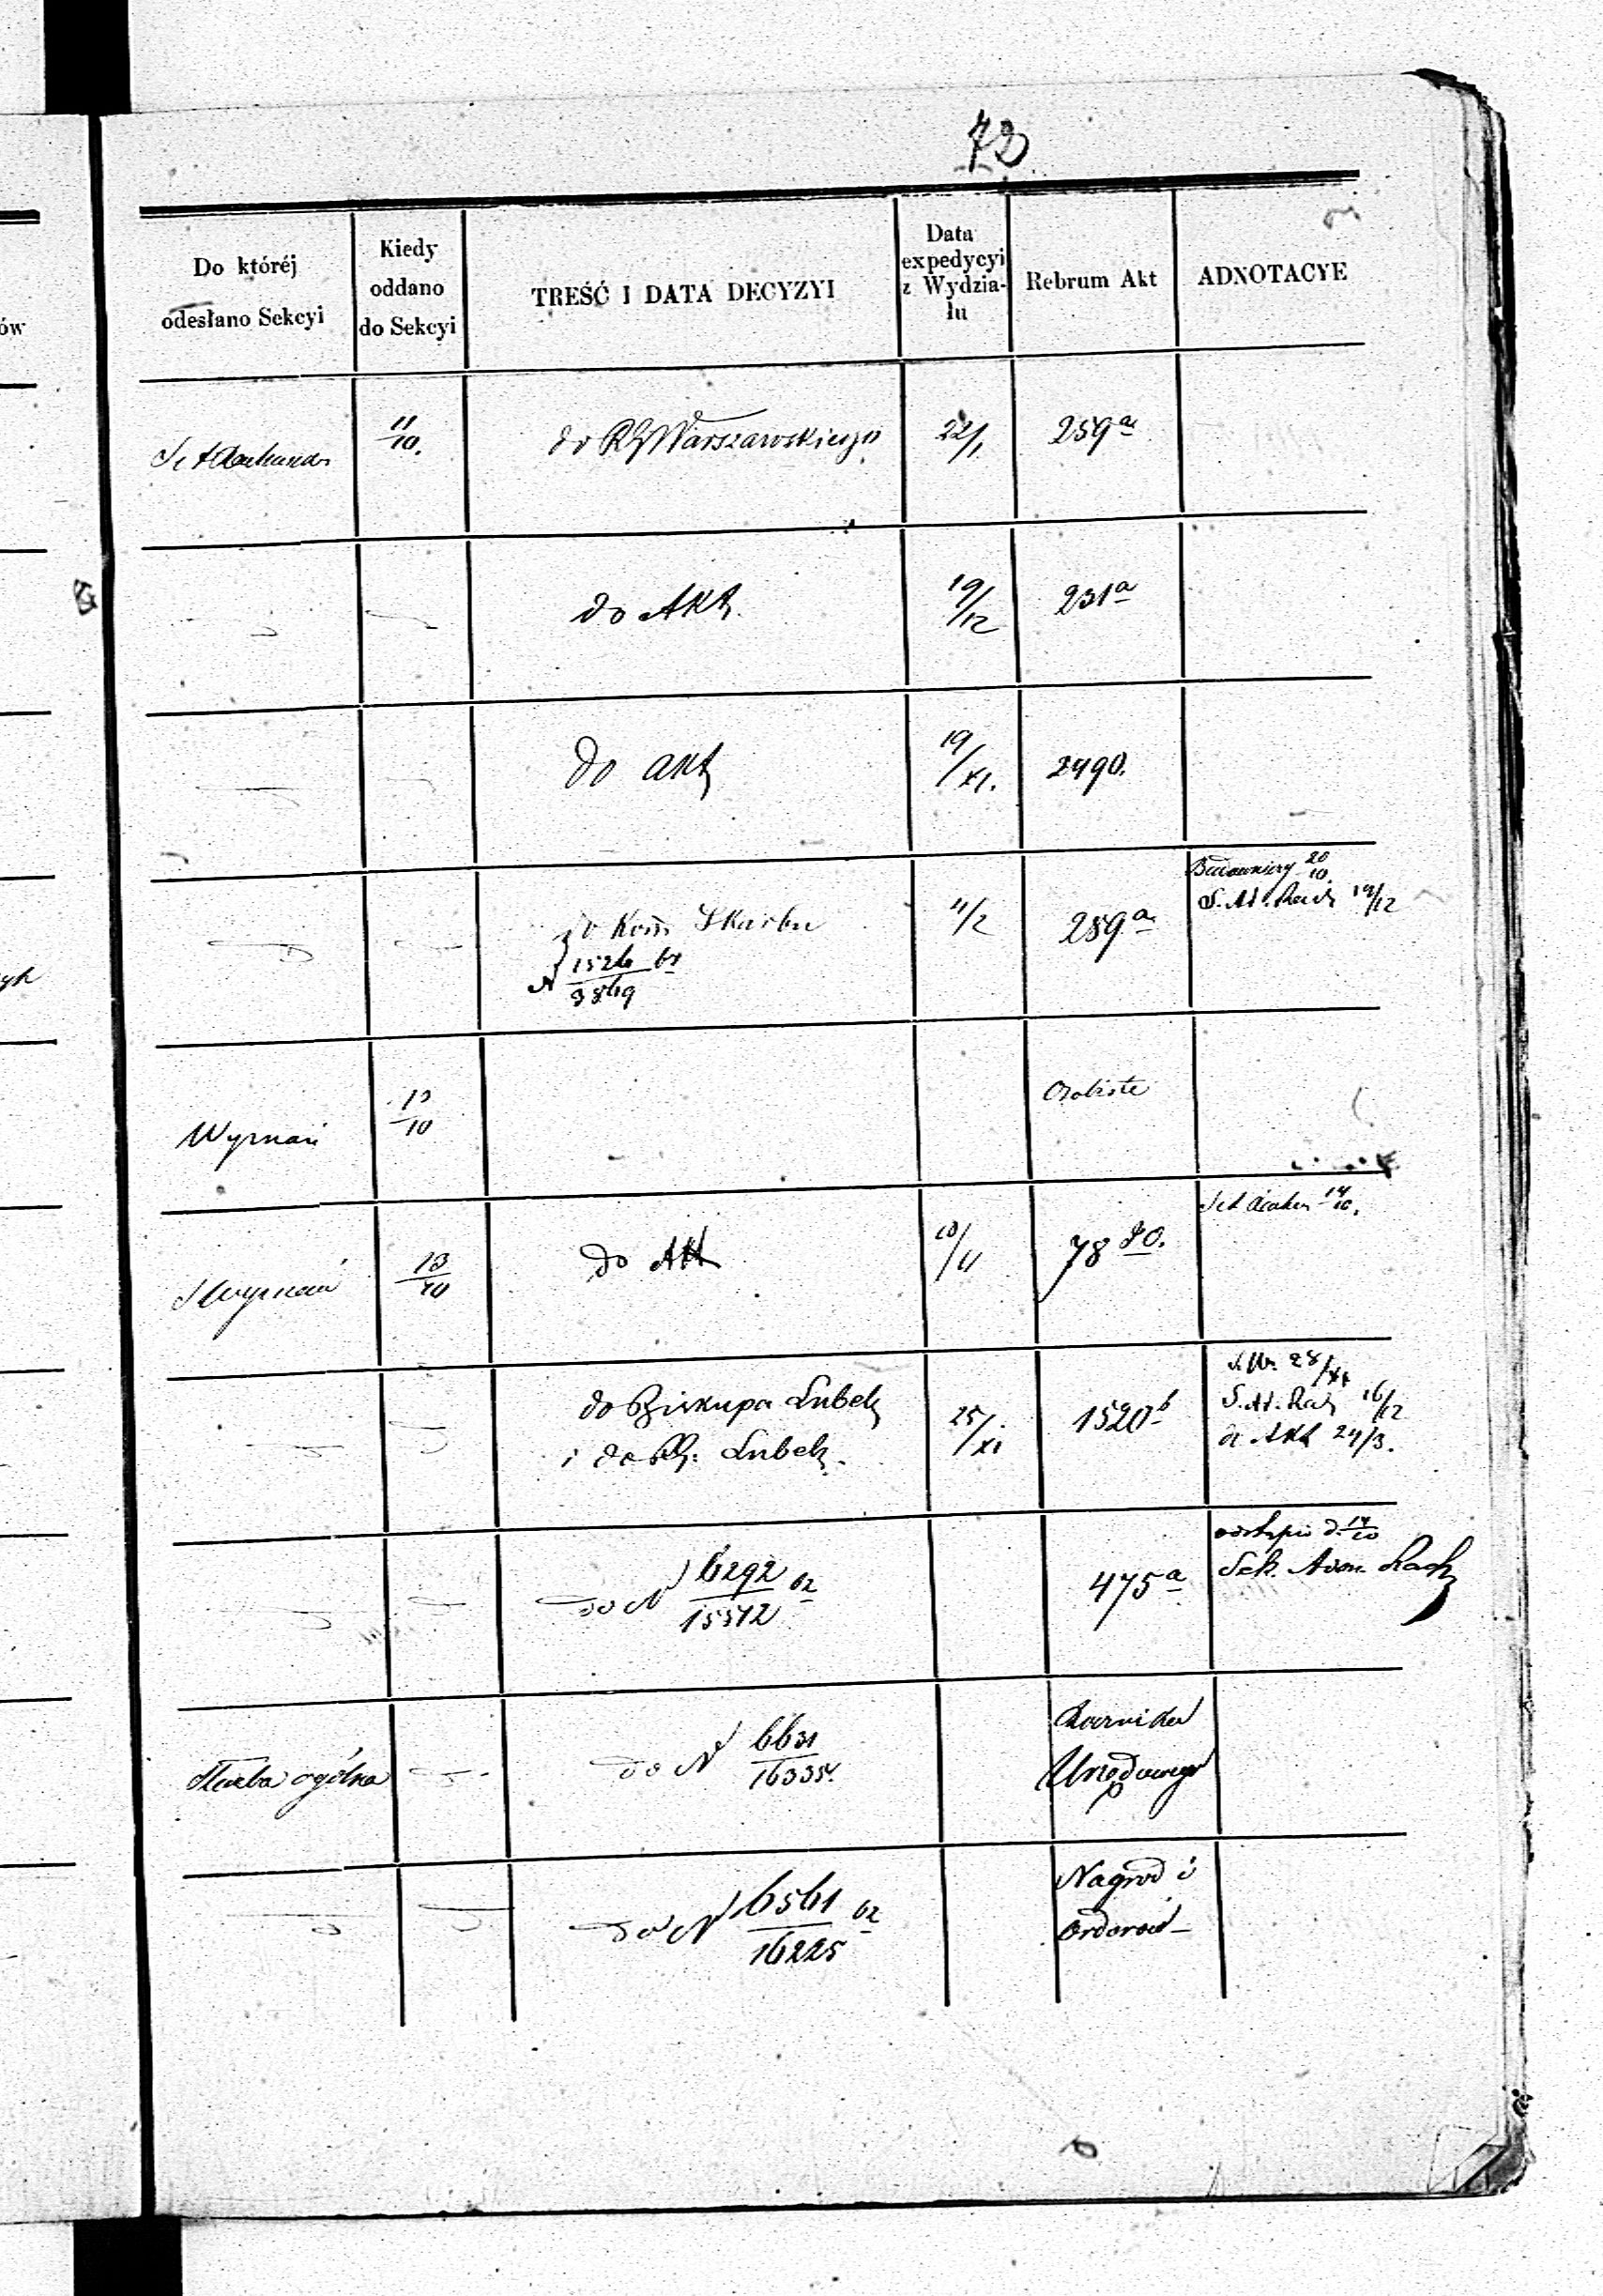 72
Do któréj
odesłano Sekcyi
Kiedy
oddano
do Sekcyi
TREŚĆ I DATA DECYZYI
Data
expedycyi
z Wydzia-
łu
Rebrum Akt
ADNOTACYE
ów
11/10.
do RG Warszawskiego
22/1
259 a
do Akt
19/12
231 a
do akt
19/XI.
2490.
do Kom Skarbu
N 1526/3869 br
4/2
259 a
Budowniczy 20/10.
S. Ad. Rach 19/12
Wyznań
13/10
Osobiste
S Wyznań
13/10
do Akt
10/11
78
14/10.
do Biskupa Lubels
i do RG. Lubels.
25/XI
1520 b
28/XI
S. Ad. Rach 16/12
Akt 24/3.
do N 6292/15572 br
475 a
odstąpio d. 14/10
Sek. Adm. Rach
Służba ogólna
do N 6631/16335.
Urzędowego
do N 6561/16225 br
Nagrod i
orderow